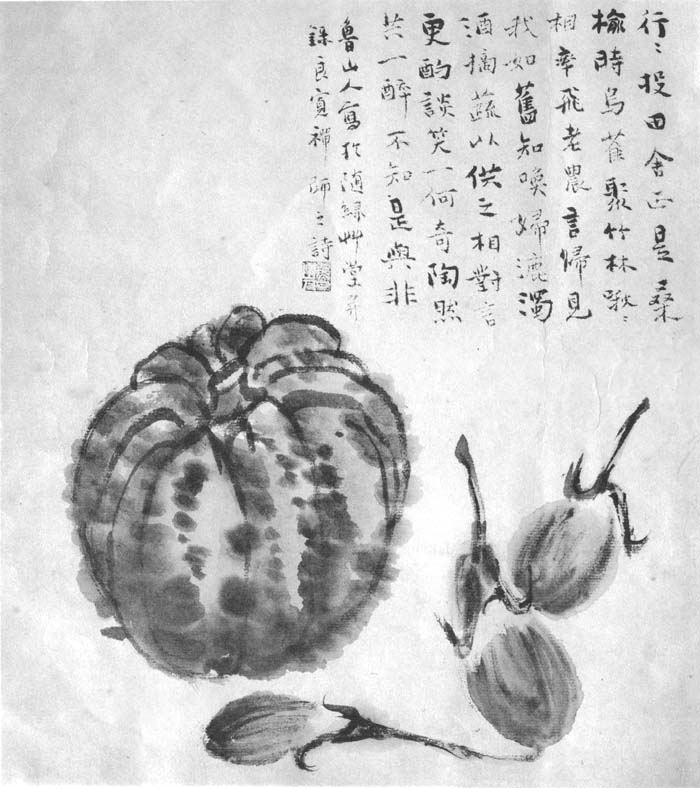 行〻投田舎正是桑
榆時鳥雀聚竹林啾〻
相率飛老農言歸見
我如舊知喚婦漉濁
酒摘蔬以供之相對言
更酌談笑一何奇陶然
共一醉不知是與非
魯山人寫於随緑艸堂并
録良寛禅師之詩